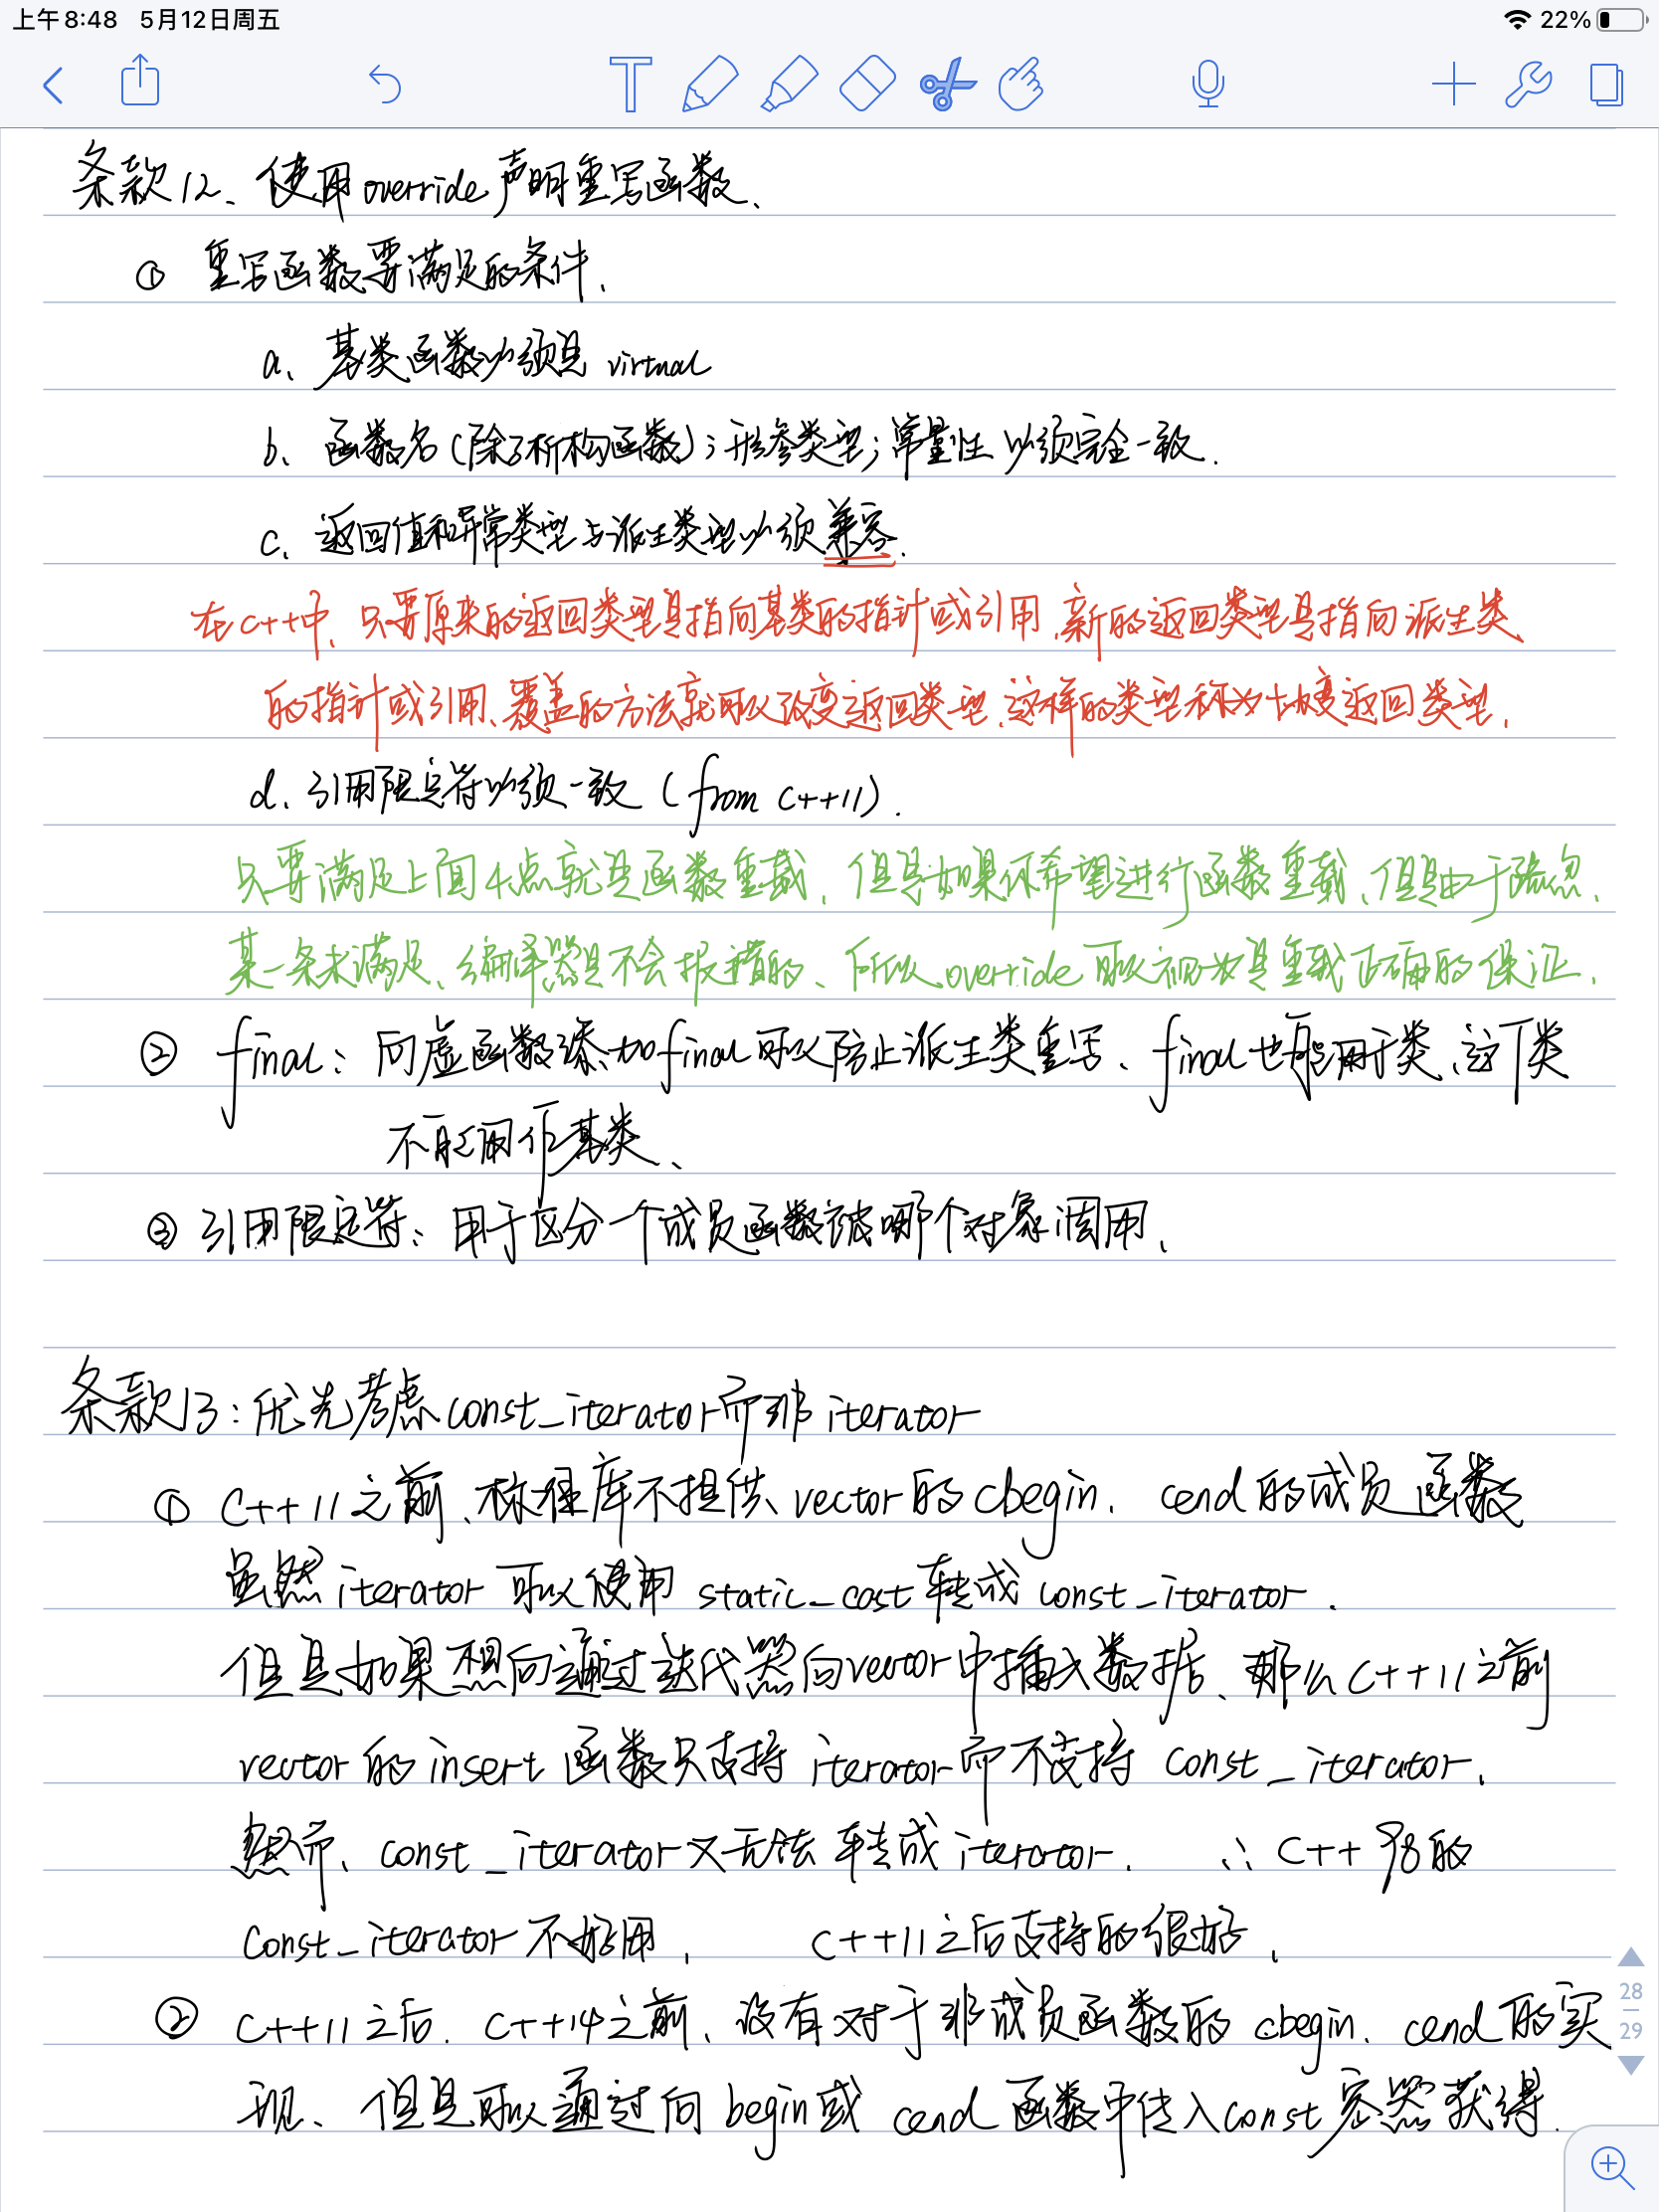 上午8:48 5月12日周五
22%
条款12、使用override声明重写函数、
① 重写函数要满足的条件、
a、基类函数必须是 virtual
b、函数名(除了析构函数);形参类型;常量性必须完全一致.
c、返回值和异常类型与派生类型必须兼容.
在c++中、只要原来的返回类型是指向基类的指针或引用、新的返回类型是指向派生类
的指针或引用、覆盖的方法就可以改变返回类型、这样的类型称为协变返回类型、
d、引用限定符必须一致 (from c++11).
只要满足上面4点就是函数重载、但是如果你希望进行函数重载、但是由于疏忽、
某一条未满足、编译器是不会报错的、所以override可以视为是重载正确的保证、
② final: 向虚函数添加final可以防止派生类重写、final也能用于类、这个类
不能用作基类、
③ 引用限定符: 用于区分一个成员函数被哪个对象调用、
条款13:优先考虑const_iterator而非iterator
① C++11之前、标准库不提供vector的cbegin、cend的成员函数
虽然iterator可以使用static_cast转成const_iterator.
但是如果想向通过迭代器向vector中插入数据、那么C++11之前
vector的insert函数只支持iterator而不支持const_iterator、
然而、const_iterator又无法转成iterator. ∴ C++98的
const_iterator不好用、 C++11之后支持的很好、
② C++11之后. C++14之前、没有对于非成员函数的cbegin、cend的实
现、但是可以通过向begin或cend函数中传入const容器获得.
28
29